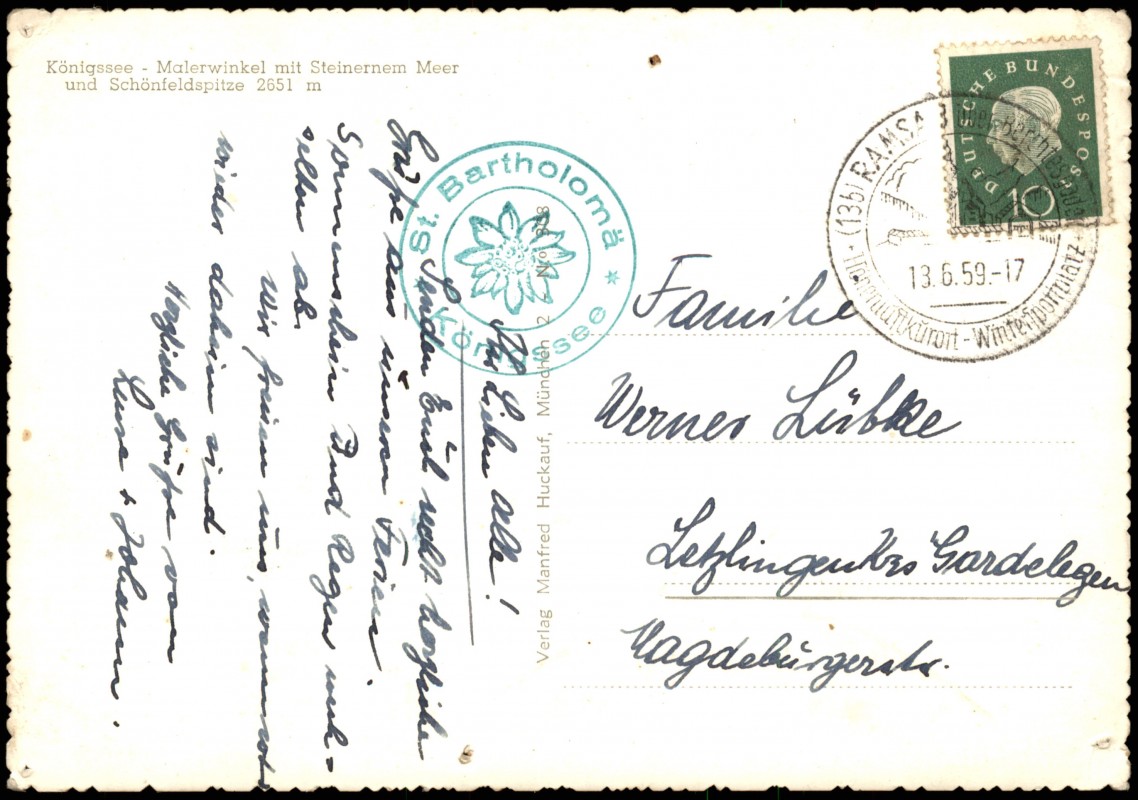 Königssee - Malerwinkel mit Steinernem Meer
und Schönfeldspitze 2651 m
Ihr Lieben alle!
Senden Euch recht herzliche
Grüße aus unseren Ferien.
Sonnenschein und Regen wech-
seln ab.
Wir freuen uns, wenn wir
wieder daheim sind.
Herzliche Grüße von
Johann.
St. Bartholomä
* Königssee *
Verlag Manfred Huckauf, München 2 No
DEUTSCHE BUNDESPOST
10
(13b) RAMSAU über Berchtesgaden
13.6.59.-17
Wintersportplatz
Familie
Werner Lübke
Letzlingen Krs Gardelegen
Magdebürgerstr.